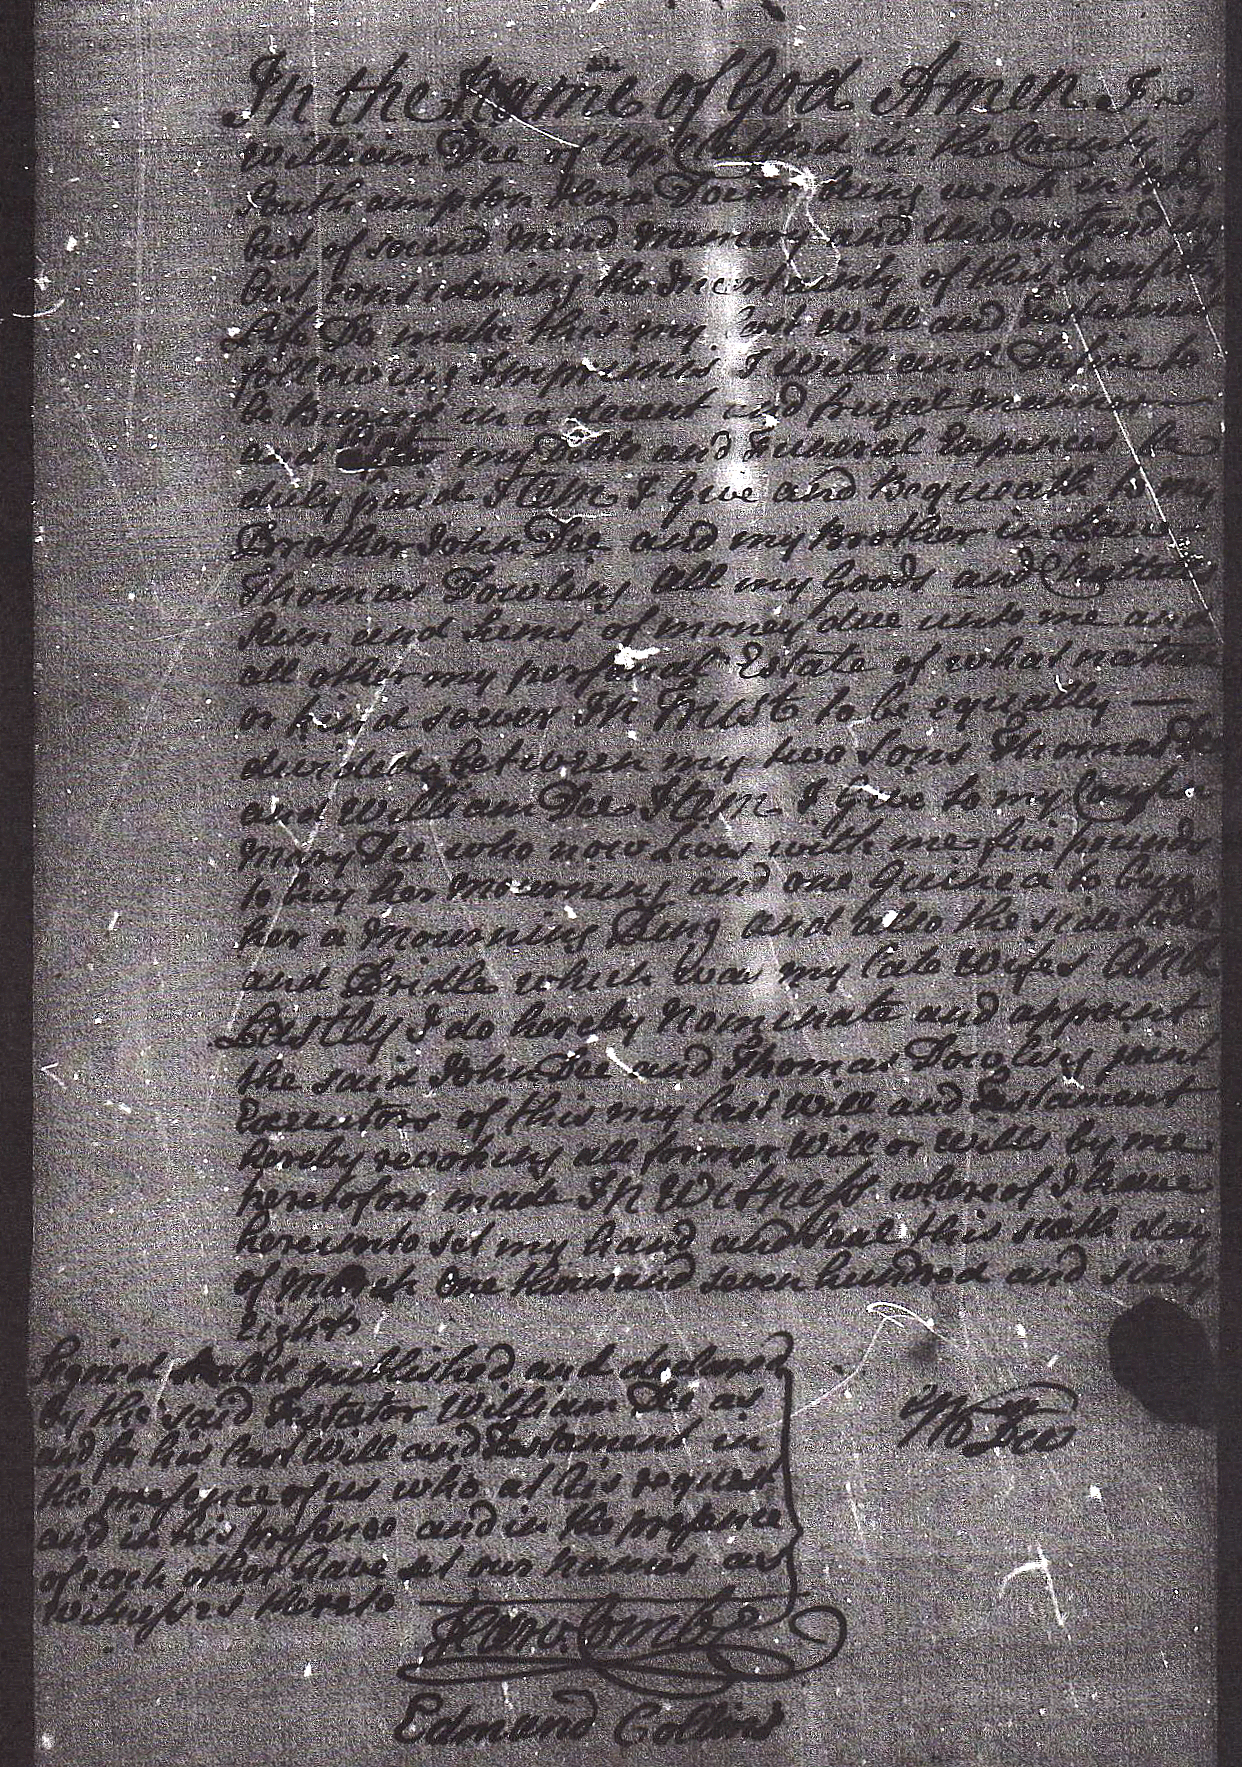 In the Name of God Amen I
William Dee of Up Clatford in the County of
Southampton Horse Doctor being weak in Body
but of sound Mind Memory and Understanding
but considering the Uncertainty of this transitory
Life Do make this my last Will and Testament
following Imprimis I Will and Desire to
be buryed in a decent and frugal manner
and my Debts and Funeral Expences be
duly paid Item I Give and Bequeath to my
Brother John Dee and my Brother in Law
Thomas Dowling all my Goods and Chattels
Sum and Sums of money due unto me and
all other my personal Estate of what nature
or kind soever In Trust to be equally
divided between my two Sons Thomas Dee
and William Dee Item I Give to my Cousin
Mary Dee who now Lives with me five pounds
to buy her Mourning and one Guinea to buy
her a Mourning Ring and also the side Sadle
and Bridle which was my late Wifes And
Lastly I do hereby Nominate and appoint
the said John Dee and Thomas Dowling joint
Executors of this my last Will and Testament
hereby revoking all former Will or Wills by me
heretofore made In Witness whereof I have
hereunto set my hand and Seal this sixth day
of March One thousand seven hundred and sixty
Eight
Signed Sealed published and declared
by the said Testator William Dee as
and for his last Will and Testament in
the presence of us who at his request
and in his presence and in the presence
of each other have set our names as
witnesses thereto
Wm Dee
Edmund Collins